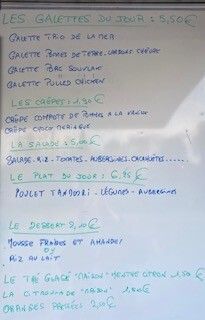 LES GALETTES DU JOUR : 5,50€
GALETTE TRIO DE LA MER
GALETTE POMMES DE TERRE - LARDONS - CHÈVRE
GALETTE PORC SOUVLAKI
ou
GALETTE PULLED CHICKEN
LES CRÊPES : 1,90€
CRÊPE COMPOTE DE POMMES A LA
CRÊPE CHOCO MERINGUE
LA SALADE : 5,00€
SALADE - RIZ - TOMATES - AUBERGINES - CACAHUETES......
LE PLAT DU JOUR : 6,95€
POULET TANDOORI - LÉGUMES - AUBERGINES
LE DESSERT 2,10€
MOUSSE FRAISES ET AMANDES
ou
RIZ AU LAIT
LE THÉ GLACÉ "MAISON" MENTHE CITRON 1.50€
LA CITRONNADE "MAISON" 1,50€
ORANGES PRESSÉES 2,50€